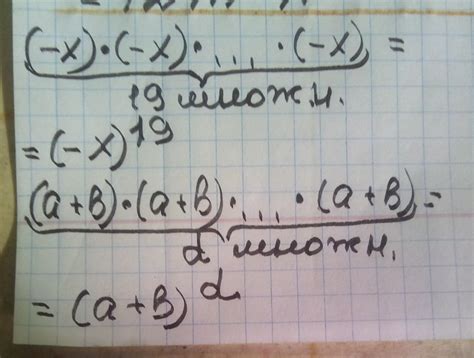 (-x)·(-x)· ... ·(-x) =
19 множн.
= (-x)^19
(a+b)·(a+b)· ... ·(a+b) =
α множн.
= (a+b)^α